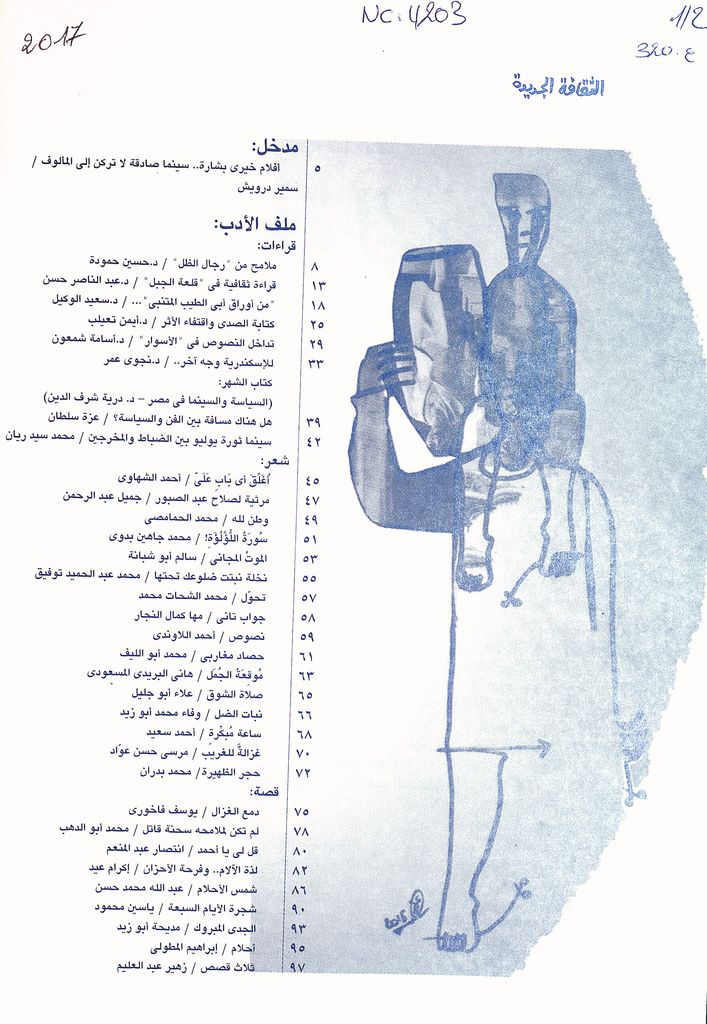 NC.4203
1/2
2017
320.ع
الثقافة الجديدة
مدخل:
٥ أفلام خيرى بشارة.. سينما صادقة لا تركن إلى المألوف /
سمير درويش
ملف الأدب:
قراءات:
٨ ملامح من "رجال الظل" / د.حسين حمودة
١٣ قراءة ثقافية فى "قلعة الجبل" / د.عبد الناصر حسن
١٨ "من أوراق أبى الطيب المتنبى"... / د.سعيد الوكيل
٢٥ كتابة الصدى واقتفاء الأثر / د.أيمن تعيلب
٢٩ تداخل النصوص فى "الأسوار" / د.أسامة شمعون
٣٣ للإسكندرية وجه آخر.. / د.نجوى عمر
كتاب الشهر:
(السياسة والسينما فى مصر – د. درية شرف الدين)
٣٩ هل هناك مسافة بين الفن والسياسة؟ / عزة سلطان
٤٢ سينما ثورة يوليو بين الضباط والمخرجين / محمد سيد ريان
شعر:
٤٥ أُغْلَق أى بَابٍ عَلَىَّ / أحمد الشهاوى
٤٧ مرثية لصلاح عبد الصبور / جميل عبد الرحمن
٤٩ وطن لله / محمد الحمامصى
٥١ سُورَةُ اللُّؤْلُؤَةِ! / محمد جاهين بدوى
٥٣ الموتُ المجانى / سالم أبو شبانة
٥٥ نخلة نبتت ضلوعك تحتها / محمد عبد الحميد توفيق
٥٧ تحوّل / محمد الشحات محمد
٥٨ جواب تانى / مها كمال النجار
٥٩ نصوص / أحمد اللاوندى
٦١ حصاد مغاربى / محمد أبو الليف
٦٣ مُوقِعَةُ الجُمَل / هانى البريدى المسعودى
٦٥ صلاة الشوق / علاء أبو جليل
٦٦ نبات الضل / وفاء محمد أبو زيد
٦٨ ساعة مُبكِّرة / أحمد سعيد
٧٠ غزالةٌ للغريب / مرسى حسن عوّاد
٧٢ حجر الظهيرة/ محمد بدران
قصة:
٧٥ دمع الغزال / يوسف فاخورى
٧٨ لم تكن لملامحه سحنة قاتل / محمد أبو الدهب
٨٠ قل لى يا أحمد / انتصار عبد المنعم
٨٢ لذة الآلام.. وفرحة الأحزان / إكرام عيد
٨٦ شمس الأحلام / عبد الله محمد حسن
٩٠ شجرة الأيام السبعة / ياسين محمود
٩٣ الجدى المبروك / مديحة أبو زيد
٩٥ أحلام / إبراهيم المطولى
٩٧ ثلاث قصص / زهير عبد العليم